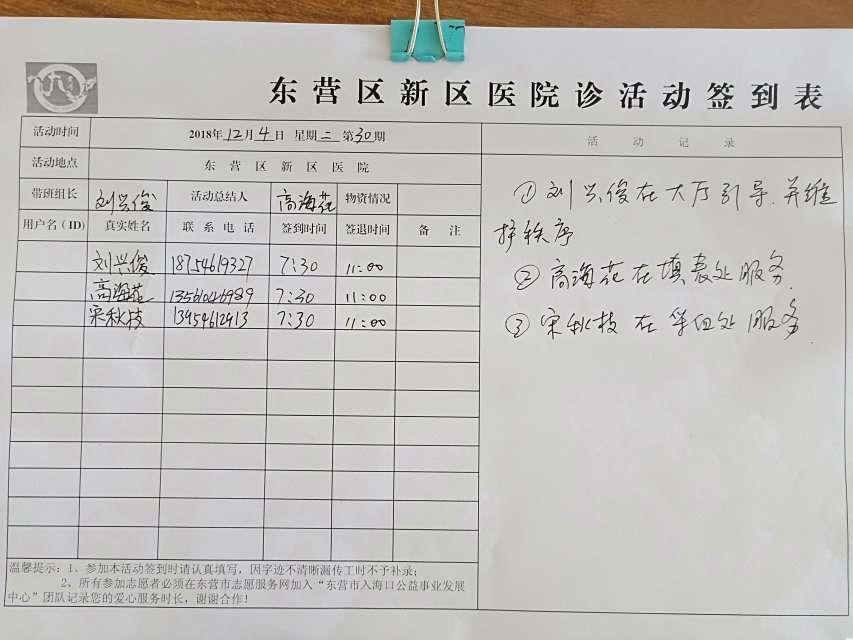 东营区新区医院诊活动签到表
活动时间 2018年12月4日 星期二 第30期
活动地点 东营区新区医院
带班组长 刘兴俊 活动总结人 高海花 物资情况
用户名(ID) 真实姓名 联系电话 签到时间 签退时间 备注
刘兴俊 18754619327 7:30 11:00
高海花 13561046989 7:30 11:00
宋秋枝 13954612913 7:30 11:00
温馨提示：1、参加本活动签到时请认真填写，因字迹不清晰漏传工时不予补录；
2、所有参加志愿者必须在东营市志愿服务网加入“东营市入海口公益事业发展
中心”团队记录您的爱心服务时长，谢谢合作！
活动记录
①刘兴俊在大厅引导.并维
护秩序
②高海花在填表处服务.
③宋秋枝在 处服务